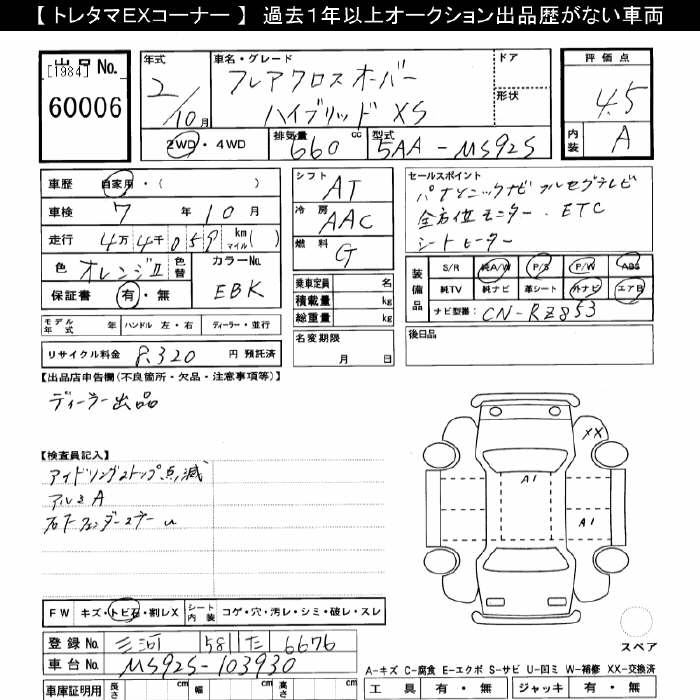 【トレタマEXコーナー】 過去1年以上オークション出品歴がない車両
出品 No.
[1984]
60006
年式
2/10月
車名・グレード
フレアクロスオーバー
ハイブリッド XS
ドア
形状
評価点
4.5
内装 A
2WD・4WD
排気量 660 cc
型式 5AA-MS92S
車歴 自家用・( )
車検 7年10月
走行 4万4千059 km マイル( )
色 オレンジII 色替
カラーNo. EBK
保証書 有・無
シフト AT
冷房 AAC
燃料 G
乗車定員 名
積載量 kg
総重量 kg
セールスポイント
パナソニックナビ フルセグテレビ
全方位モニター. ETC
シートヒーター
装備品
S/R 純A/W P/S P/W ABS
純TV 純ナビ 革シート 外ナビ エアB
ナビ型番( CN-RZ853
モデル年式 年 ハンドル 左・右 ディーラー・並行
リサイクル料金 8,320 円 預託済
名変期限
月 日
後日品
【出品店申告欄(不良箇所・欠品・注意事項等)】
ディーラー出品
【検査員記入】
アイドリングストップ点滅
アルミA
右Fフェンダーステー
XX
A1
A1
FW キズ・トビ石・割レX
シート内装 コゲ・穴・汚レ・シミ・破レ・スレ
登録No. 三河 581 た 6676
車台No. MS92S-103930
スペア
A-キズ C-腐食 E-エクボ S-サビ U-凹ミ W-補修 XX-交換済
車庫証明用 長さ cm 幅 cm 高さ cm
工具 有・無 ジャッキ 有・無